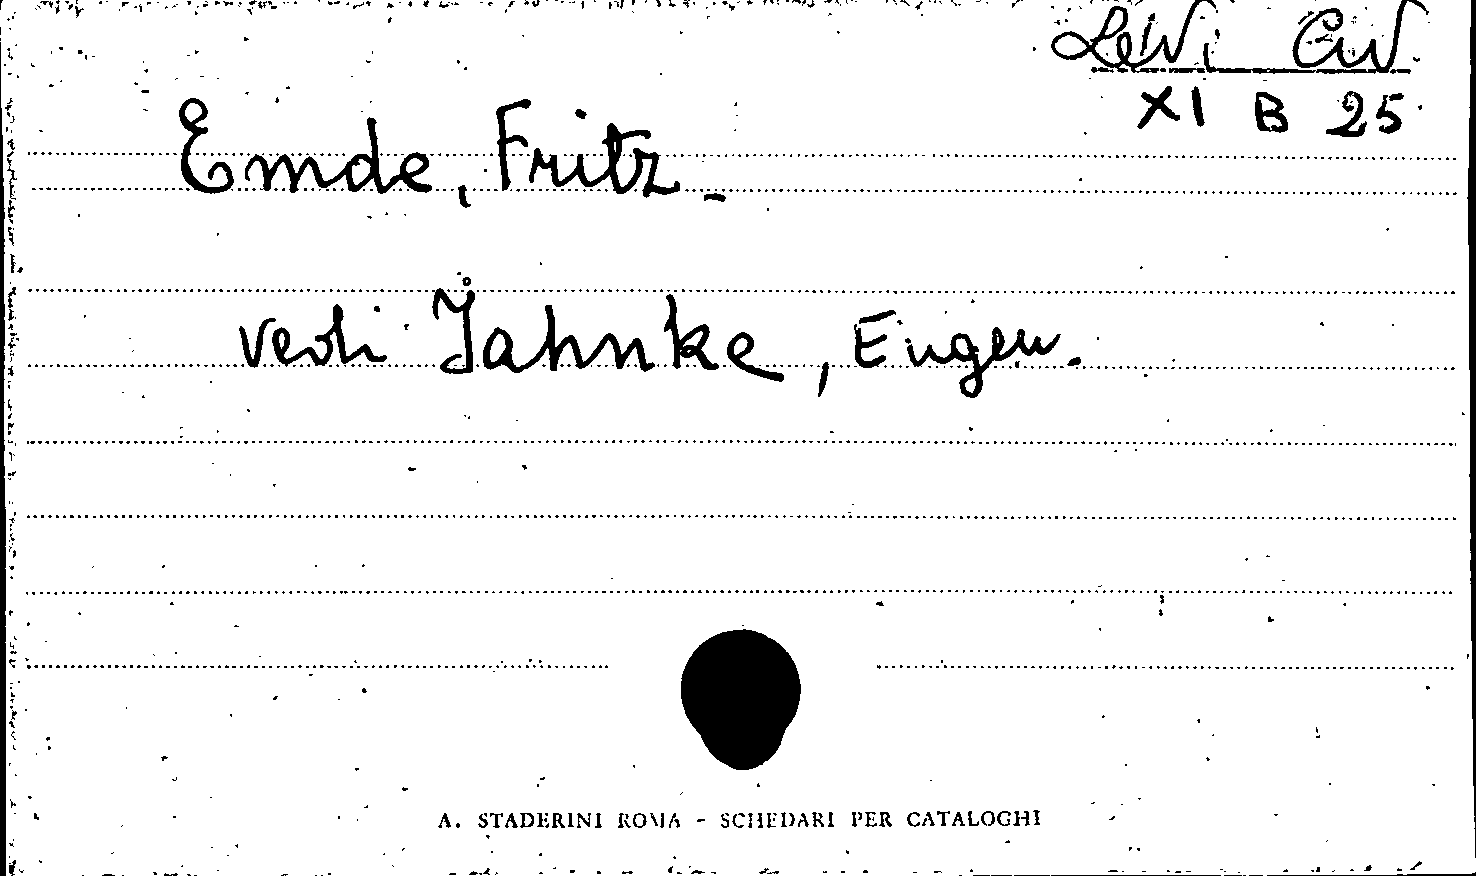 Levi Civ.
XI B 25
Emde, Fritz -
vedi Jahnke, Eugen.
A. STADERINI ROMA - SCHEDARI PER CATALOGHI